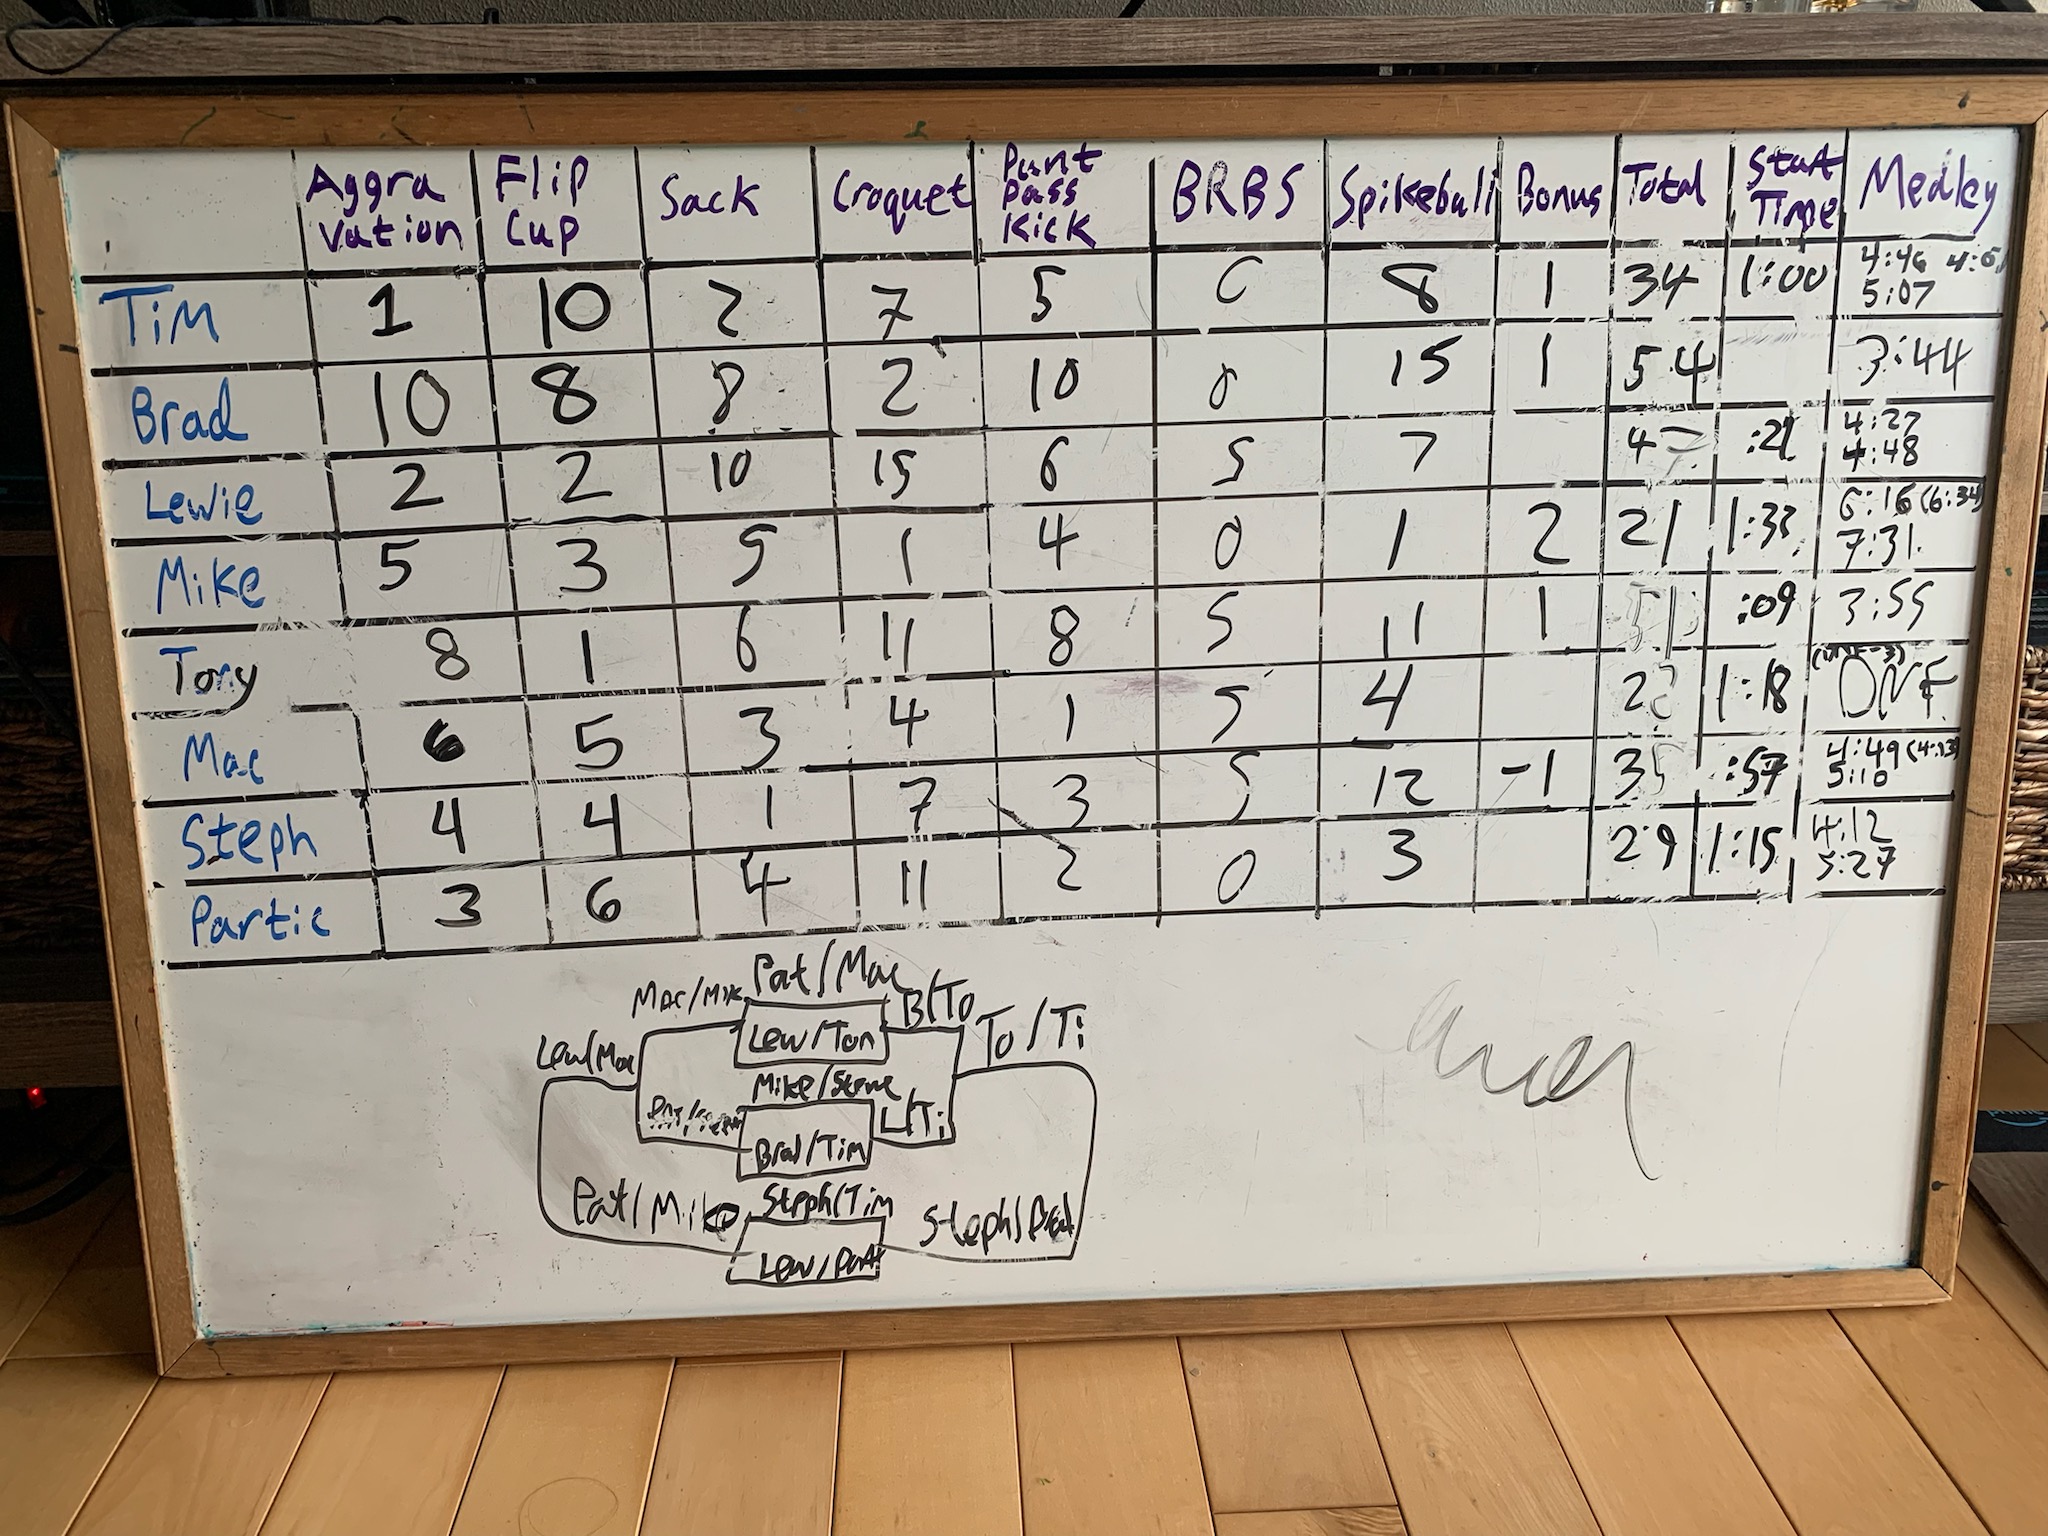 Aggra vation Flip Cup Sack Croquet Punt Pass Kick BRBS Spikeball Bonus Total Start Time Medley
Tim 1 10 2 7 5 0 8 1 34 1:00 4:46 5:07
Brad 10 8 8 2 10 0 15 1 54 3:44
Lewie 2 2 10 15 6 5 7 47 :21 4:27 4:48
Mike 5 3 5 1 4 0 1 2 21 1:33 6:16 (6:34) 7:31
Tony 8 1 6 11 8 5 11 1 51 :09 3:55
Mac 6 5 3 4 1 5 4 28 1:18 DNF
Steph 4 4 1 7 3 5 12 -1 35 :57 4:49 5:10
Partic 3 6 4 11 2 0 3 29 1:15 4:12 5:27
Pat/Mac
Mac/Mik B/To
Lew/Ton To/Ti
Lew/Mac
Mike/Steve
L/Ti
Brad/Tim
Pat/Mike Steph/Tim Steph/Brad
Lew/Pat